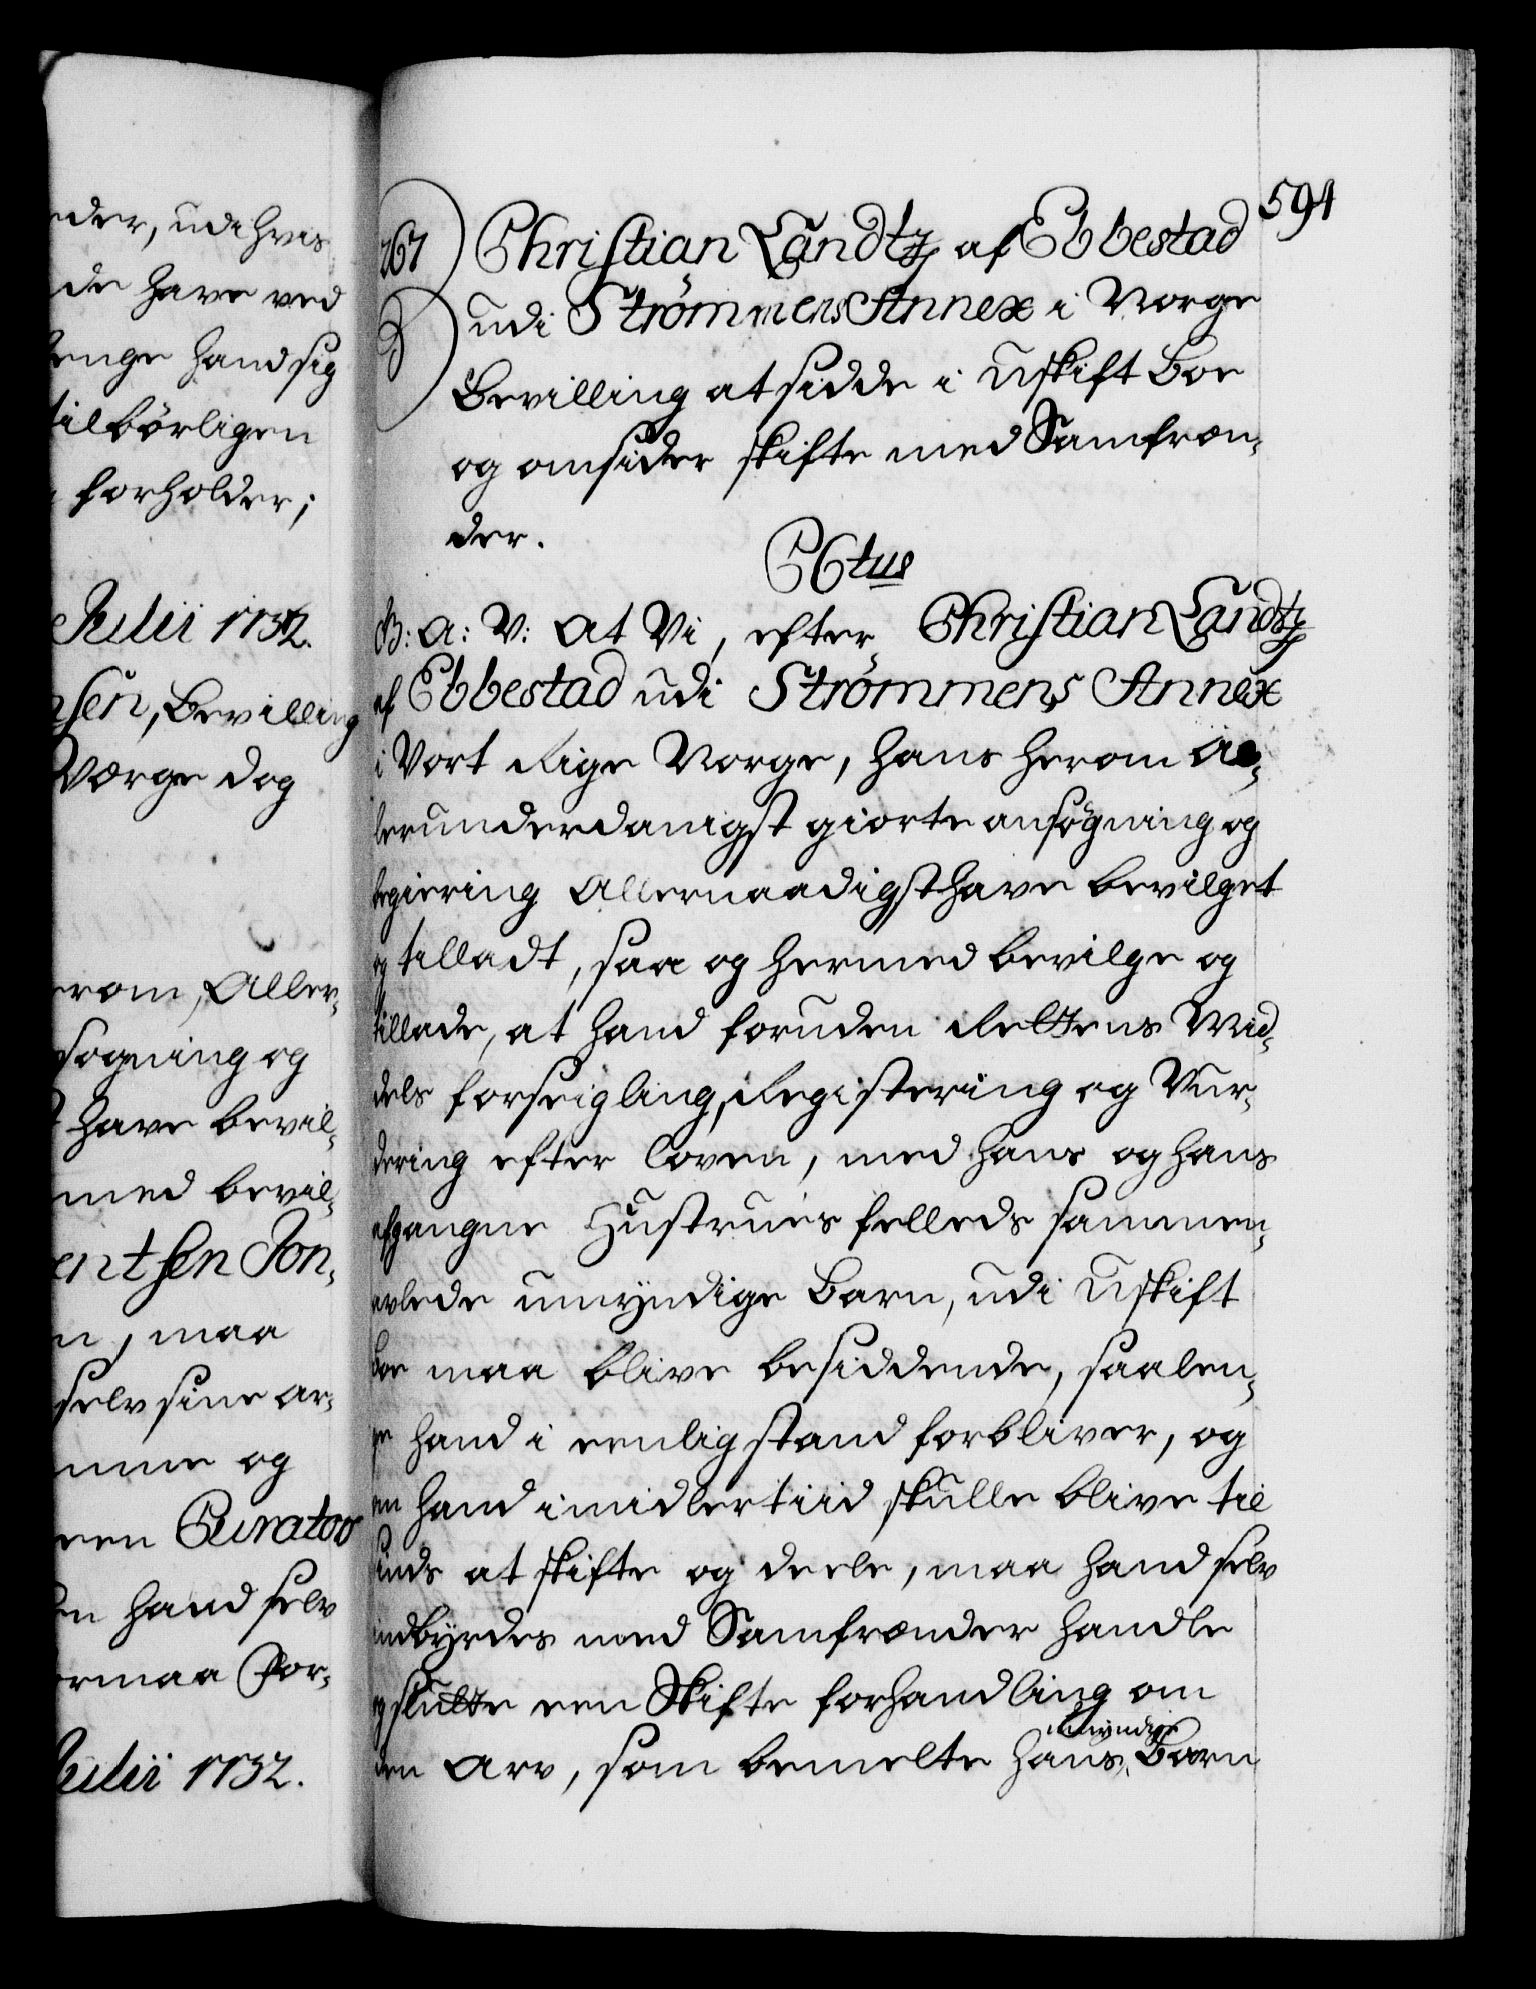 eder, udi hvis
de have ved
lenge hand sig
tilbörligen
forholder;
Julii 1732.
sen, Bevilling
Værge dog
erom, Aller-
søgning og
have bevil-
med bevil-
entsen Jon-
n, maa
selv sine ar-
mme og
een Curator
en hand selv
ormaa For-
Julii 1732.
591
267
Christian Landtz af Ebbestad
udi Strömmens Annex i Norge
Bevilling at sidde i Uskift Boe
og omsider skifte med Samfræn-
der.
C6tus
G: A: V: At Vi, efter Christian Landtz
af Ebbestad udi Strömmens Annex
i Vort Rige Norge, hans herom al-
lerunderdanigst giorte ansøgning og
begiering Allernaadigst have bevilget
og tilladt, saa og hermed bevilge og
tillade, at hand foruden Rettens Mid-
dels forseigling, Registering og Vur-
dering efter Loven, med hans og hans
afgangne Hustrues felleds sammen-
avlede umyndige Barn, udi Uskift
boe maa blive besiddende, saalen-
ge hand i eenlig stand forbliver, og
om hand imidlertiid skulle blive til
sinds at skifte og deele, maa hand selv
indbyrdes med Samfrænder handle
og slutte een Skifte forhandling om
den Arv, som bemelte hans umyndige Barn